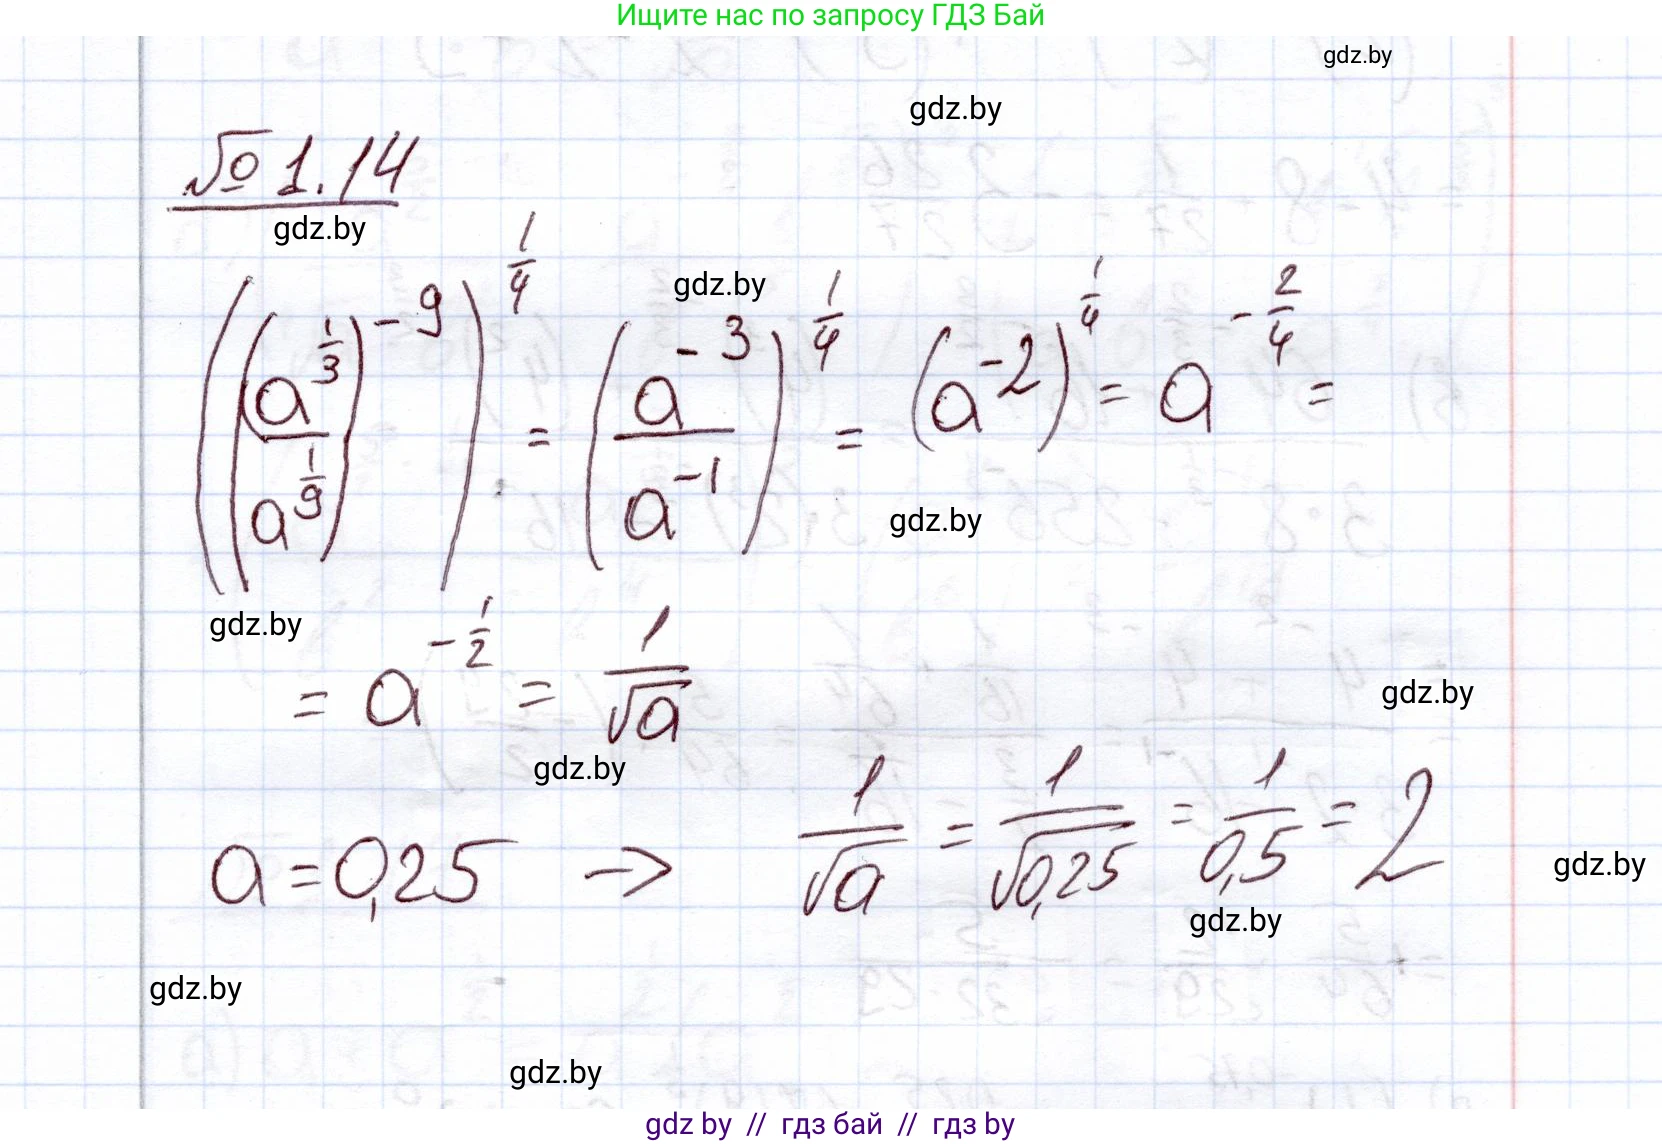 Ищите нас по запросу ГДЗ Бай
gdz.by
gdz.by
№ 1.14
gdz.by
gdz.by
((a^{1/3} / a^{1/9})^{-9})^{1/4} = (a^{-3} / a^{-1})^{1/4} = (a^{-2})^{1/4} = a^{-2/4} =
gdz.by
gdz.by
= a^{-1/2} = 1/√a
gdz.by
gdz.by
a = 0,25 → 1/√a = 1/√0,25 = 1/0,5 = 2
gdz.by
gdz.by
gdz.by
gdz.by
gdz by // гдз бай // гдз by